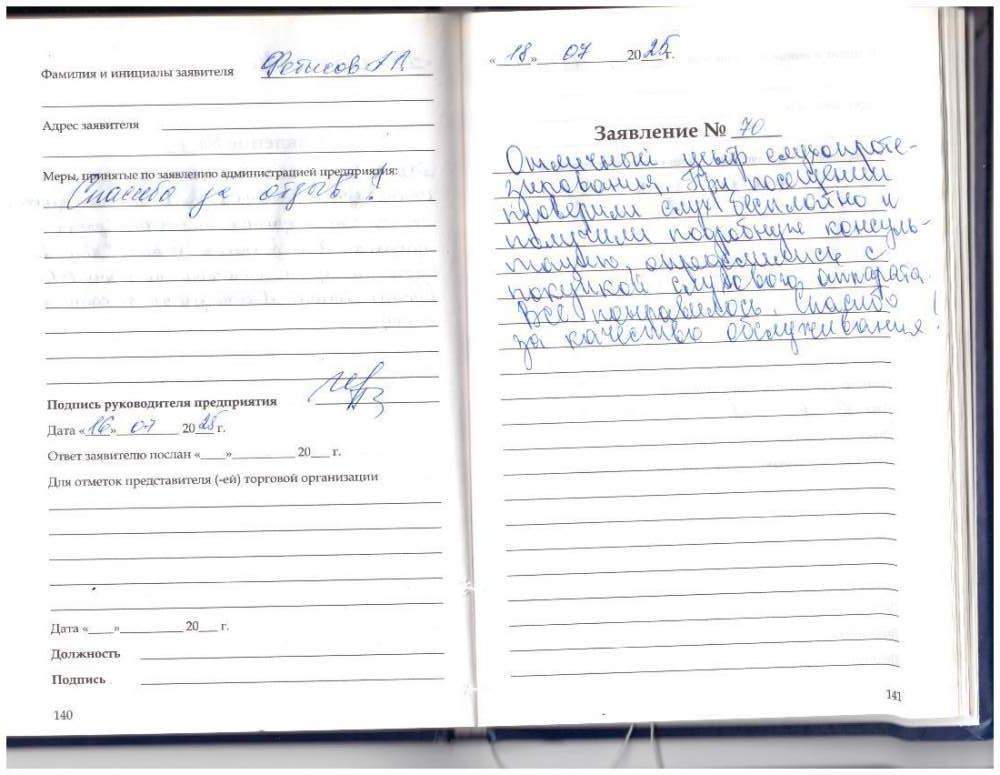 Фамилия и инициалы заявителя Фетисов А А
Адрес заявителя
Меры, принятые по заявлению администрацией предприятия:
Спасибо за отзыв!
Подпись руководителя предприятия
Дата «16» 07 2025 г.
Ответ заявителю послан «    » 20    г.
Для отметок представителя (-ей) торговой организации
Дата «    » 20    г.
Должность
Подпись
140
«18» 07 2025 г.
Заявление № 70
Отличный центр слухопроте-
зирования. При посещении
проверили слух бесплатно и
получили подробную консуль-
тацию, определились с
покупкой слухового аппарата.
Всё понравилось. Спасибо
за качество обслуживания!
141